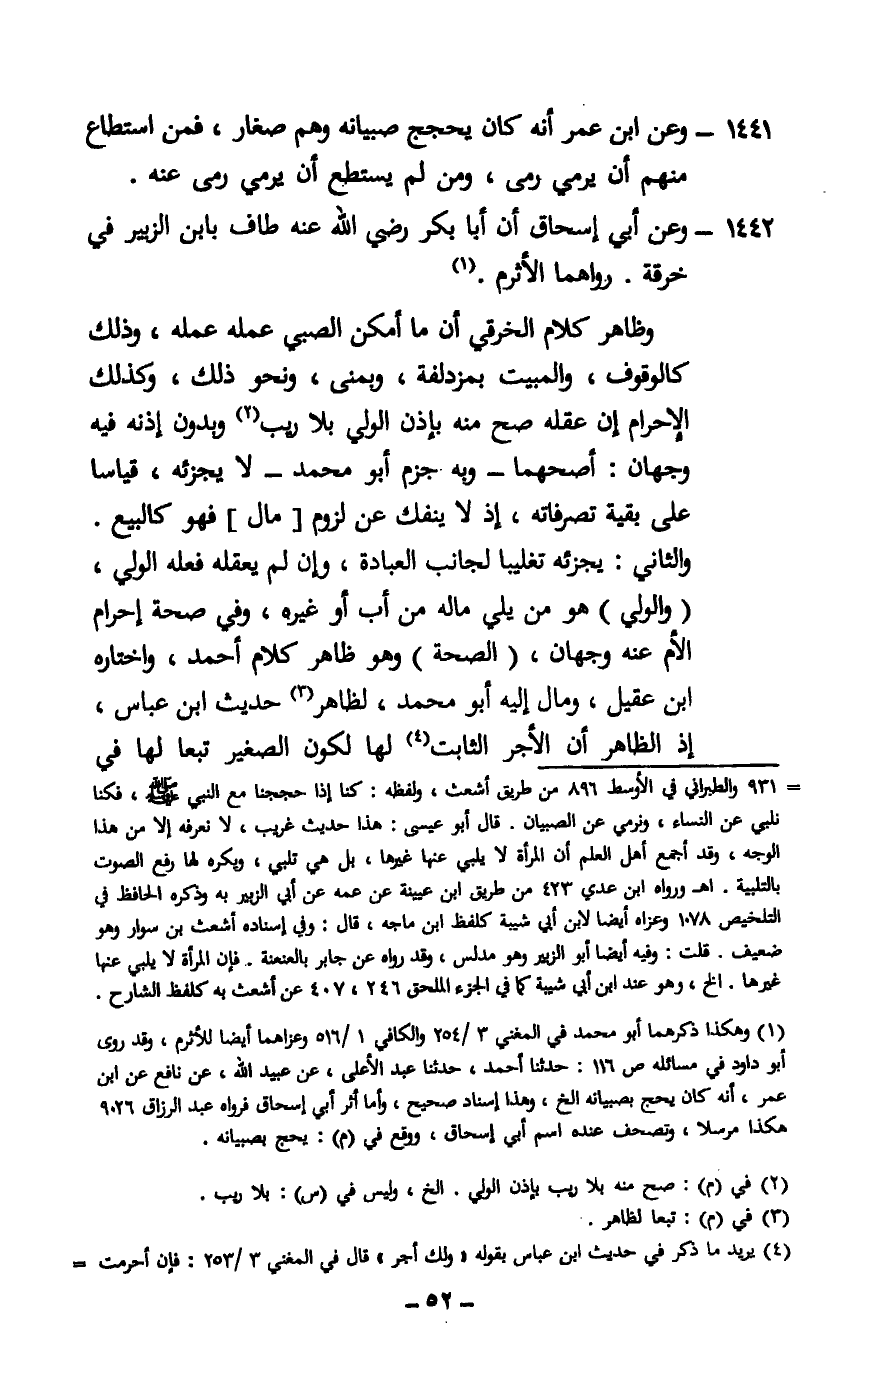 ١٤٤١ ــ وعن ابن عمر أنه كان يحجج صبيانه وهم صغار ، فمن استطاع
منهم أن يرمي رمى ، ومن لم يستطع أن يرمي رمى عنه .
١٤٤٢ ــ وعن أبي إسحاق أن أبا بكر رضي الله عنه طاف بابن الزبير في
خرقة . رواهما الأثرم .(١)
وظاهر كلام الخرقي أن ما أمكن الصبي عمله عمله ، وذلك
كالوقوف ، والمبيت بمزدلفة ، وبمنى ، ونحو ذلك ، وكذلك
الإحرام إن عقله صح منه بإذن الولي بلا ريب(٢) وبدون إذنه فيه
وجهان : أصحهما ــ وبه جزم أبو محمد ــ لا يجزئه ، قياسا
على بقية تصرفاته ، إذ لا ينفك عن لزوم [ مال ] فهو كالبيع .
والثاني : يجزئه تغليبا لجانب العبادة ، وإن لم يعقله فعله الولي ،
( والولي ) هو من يلي ماله من أب أو غيره ، وفي صحة إحرام
الأم عنه وجهان ، ( الصحة ) وهو ظاهر كلام أحمد ، واختاره
ابن عقيل ، ومال إليه أبو محمد ، لظاهر(٣) حديث ابن عباس ،
إذ الظاهر أن الأجر الثابت(٤) لها لكون الصغير تبعا لها في
= ٩٣١ والطبراني في الأوسط ٨٩٦ من طريق أشعث ، ولفظه : كنا إذا حججنا مع النبي ﷺ ، فكنا
نلبي عن النساء ، ونرمي عن الصبيان . قال أبو عيسى : هذا حديث غريب ، لا نعرفه إلا من هذا
الوجه ، وقد أجمع أهل العلم أن المرأة لا يلبي عنها غيرها ، بل هي تلبي ، ويكره لها رفع الصوت
بالتلبية . اهـ ورواه ابن عدي ٤٢٣ من طريق ابن عيينة عن عمه عن أبي الزبير به وذكره الحافظ في
التلخيص ١٠٧٨ وعزاه أيضا لابن أبي شيبة كلفظ ابن ماجه ، قال : وفي إسناده أشعث بن سوار وهو
ضعيف . قلت : وفيه أيضا أبو الزبير وهو مدلس ، وقد رواه عن جابر بالعنعنة . فإن المرأة لا يلبي عنها
غيرها . الخ ، وهو عند ابن أبي شيبة كما في الجزء الملحق ٢٤٦ ، ٤٠٧ عن أشعث به كلفظ الشارح .
(١) وهكذا ذكرهما أبو محمد في المغني ٣ /٢٥٤ والكافي ١ /٥١٦ وعزاهما أيضا للأثرم ، وقد روى
أبو داود في مسائله ص ١١٦ : حدثنا أحمد ، حدثنا عبد الأعلى ، عن عبيد الله ، عن نافع عن ابن
عمر ، أنه كان يحج بصبيانه الخ ، وهذا إسناد صحيح ، وأما أثر أبي إسحاق فرواه عبد الرزاق ٩٠٢٦
هكذا مرسلا ، وتصحف عنده اسم أبي إسحاق ، ووقع في (م) : يحج بصبيانه .
(٢) في (م) : صح منه بلا ريب بإذن الولي . الخ ، وليس في (س) : بلا ريب .
(٣) في (م) : تبعا لظاهر .
(٤) يريد ما ذكر في حديث ابن عباس بقوله « ولك أجر » قال في المغني ٣ /٢٥٣ : فإن أحرمت =
ــ ٥٢ ــ